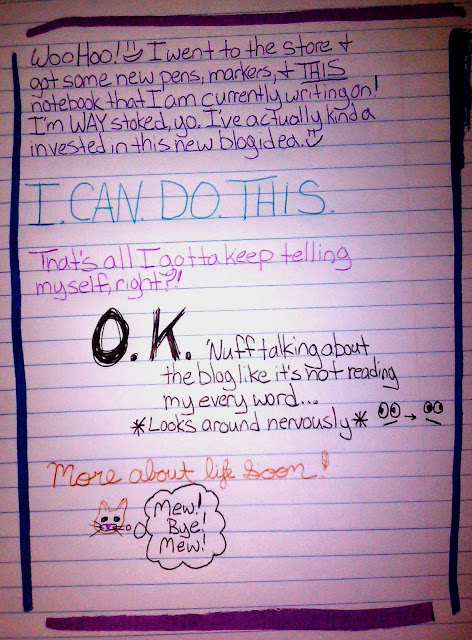 WooHoo! I went to the store +
got some new pens, markers, + THIS
notebook that I am currently writing on!
I'm WAY stoked, yo. I've actually kinda
invested in this new blog idea.
I. CAN. DO. THIS.
That's all I gotta keep telling
myself, right?!
O.K. 'Nuff talking about
the blog like it's not reading
my every word...
*Looks around nervously* →
More about life soon!
Mew!
Bye!
Mew!